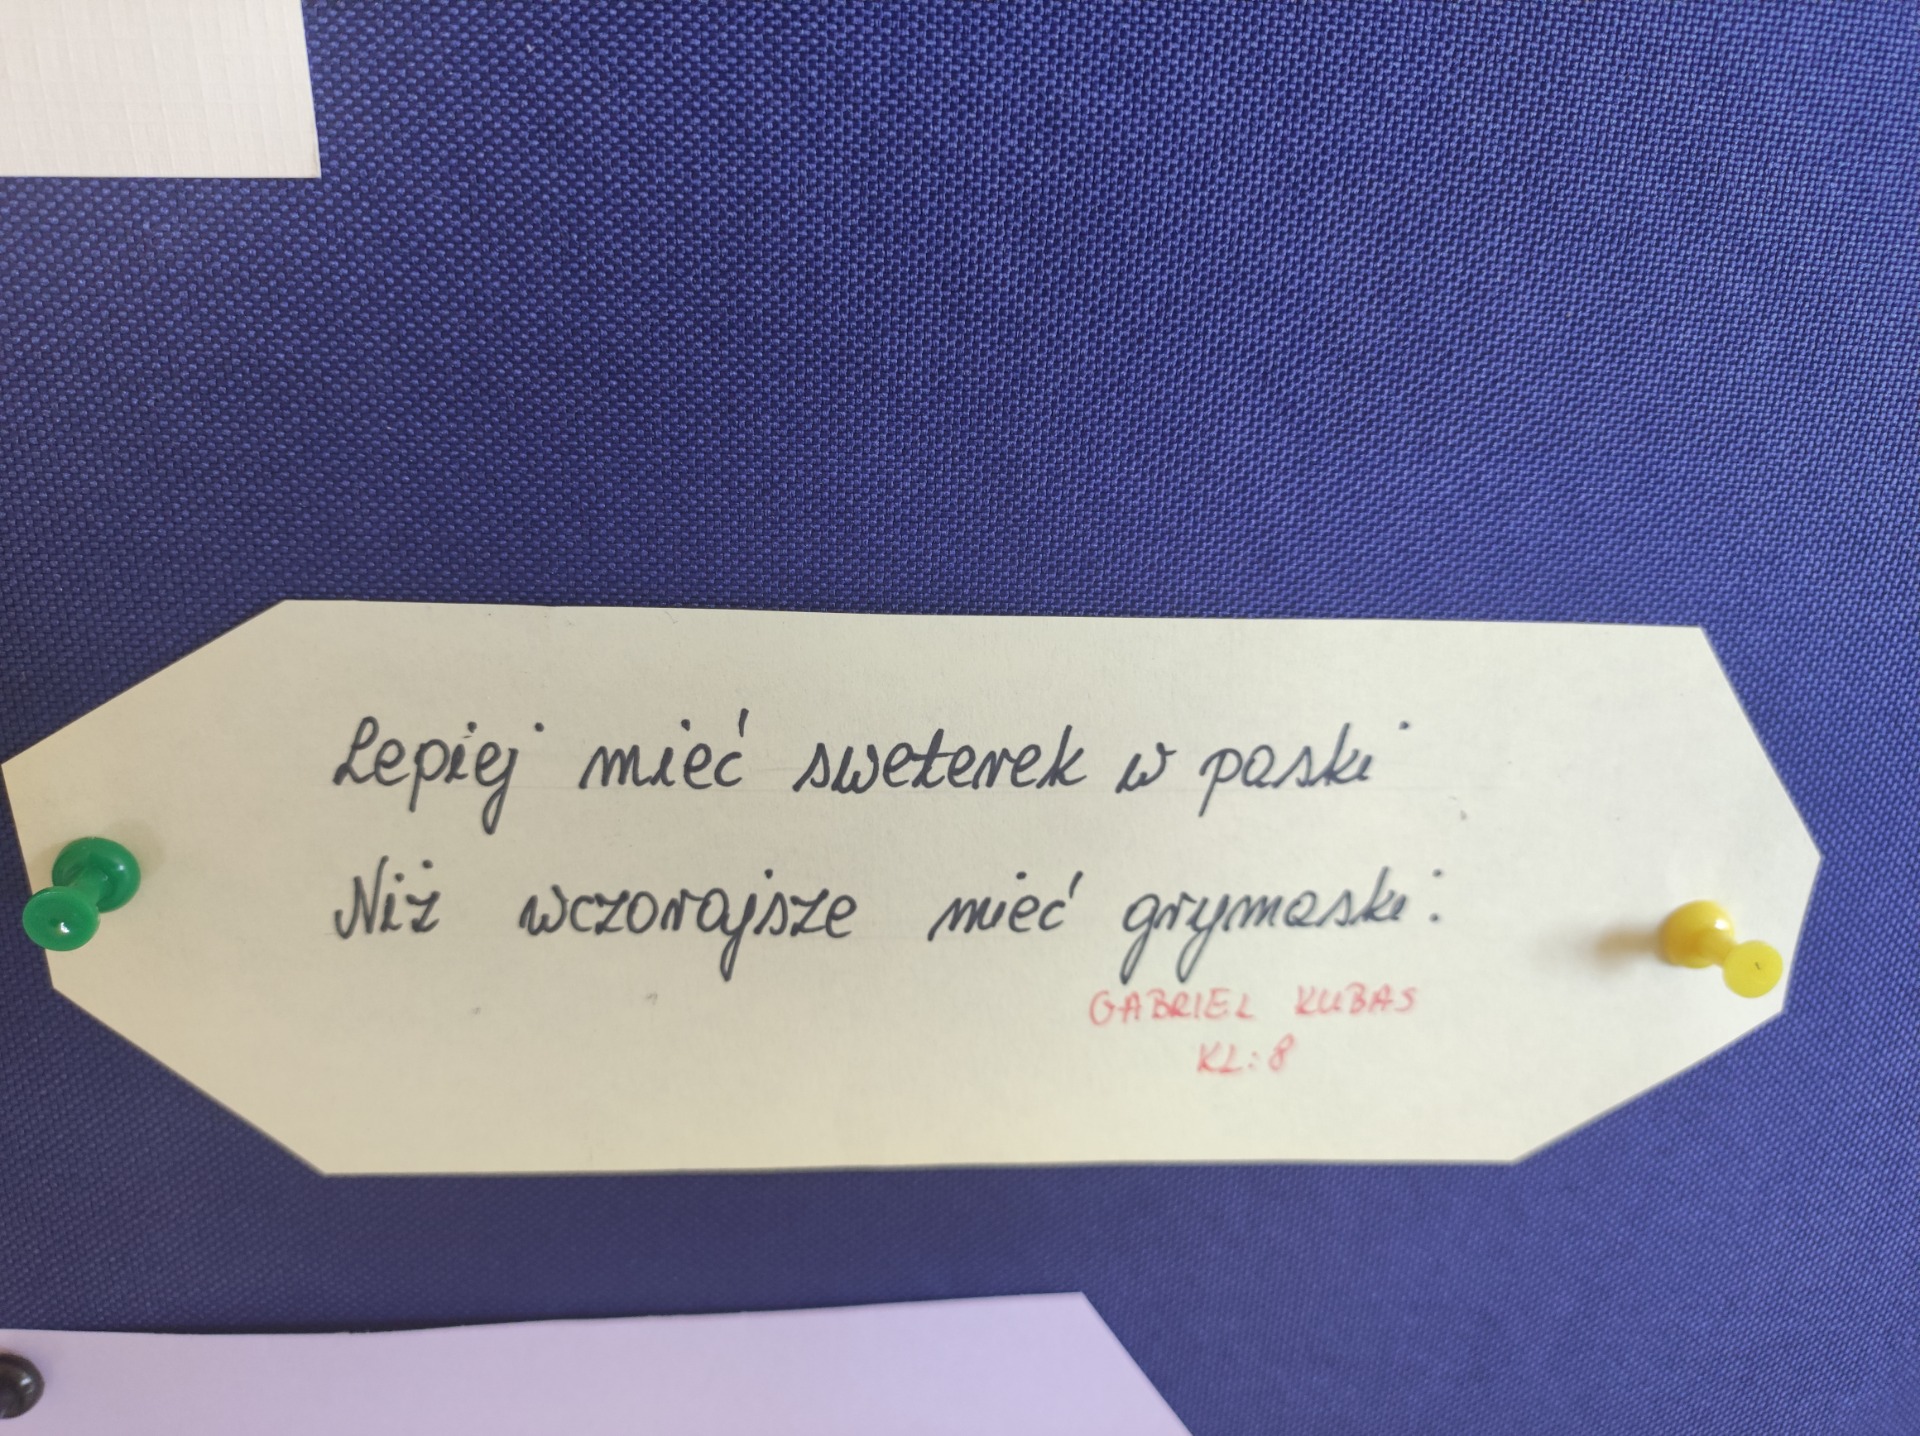 Lepiej mieć sweterek w paski
Niż wczorajsze mieć grymaski.
GABRIEL KUBAS
KL: 8